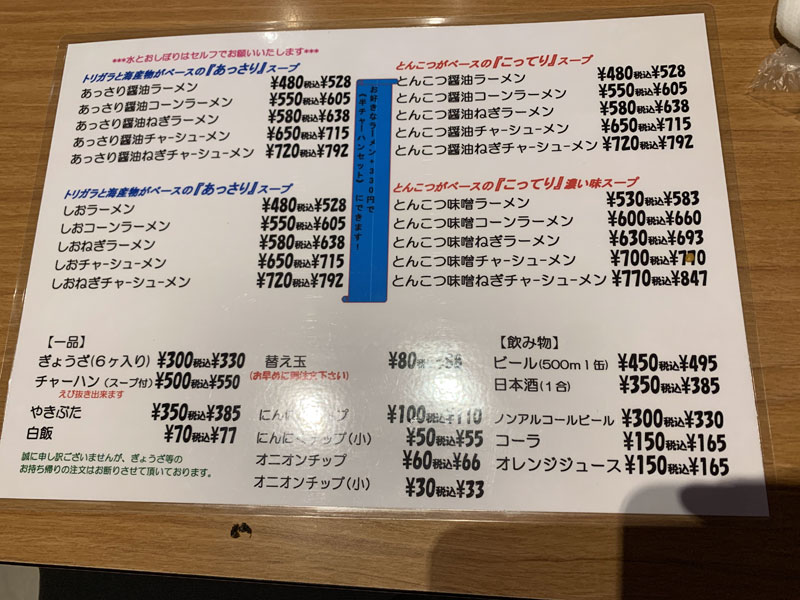 ***水とおしぼりはセルフでお願いいたします***
トリガラと海産物がベースの『あっさり』スープ
あっさり醤油ラーメン ¥480税込¥528
あっさり醤油コーンラーメン ¥550税込¥605
あっさり醤油ねぎラーメン ¥580税込¥638
あっさり醤油チャーシューメン ¥650税込¥715
あっさり醤油ねぎチャーシューメン ¥720税込¥792
トリガラと海産物がベースの『あっさり』スープ
しおラーメン ¥480税込¥528
しおコーンラーメン ¥550税込¥605
しおねぎラーメン ¥580税込¥638
しおチャーシューメン ¥650税込¥715
しおねぎチャーシューメン ¥720税込¥792
お好きなラーメン+330円で
(半チャーハンセット) にできます!
とんこつがベースの『こってり』スープ
とんこつ醤油ラーメン ¥480税込¥528
とんこつ醤油コーンラーメン ¥550税込¥605
とんこつ醤油ねぎラーメン ¥580税込¥638
とんこつ醤油チャーシューメン ¥650税込¥715
とんこつ醤油ねぎチャーシューメン ¥720税込¥792
とんこつがベースの『こってり』濃い味スープ
とんこつ味噌ラーメン ¥530税込¥583
とんこつ味噌コーンラーメン ¥600税込¥660
とんこつ味噌ねぎラーメン ¥630税込¥693
とんこつ味噌チャーシューメン ¥700税込¥770
とんこつ味噌ねぎチャーシューメン ¥770税込¥847
【一品】
ぎょうざ(6ヶ入り) ¥300税込¥330
チャーハン(スープ付) ¥500税込¥550
えび抜き出来ます
やきぶた ¥350税込¥385
白飯 ¥70税込¥77
誠に申し訳ございませんが、ぎょうざ等の
お持ち帰りの注文はお断りさせて頂いております。
替え玉 ¥80
(お早めに御注文下さい)
にんにくチップ ¥100税込¥110
にんにくチップ(小) ¥50税込¥55
オニオンチップ ¥60税込¥66
オニオンチップ(小) ¥30税込¥33
【飲み物】
ビール(500ml缶) ¥450税込¥495
日本酒(1合) ¥350税込¥385
ノンアルコールビール ¥300税込¥330
コーラ ¥150税込¥165
オレンジジュース ¥150税込¥165